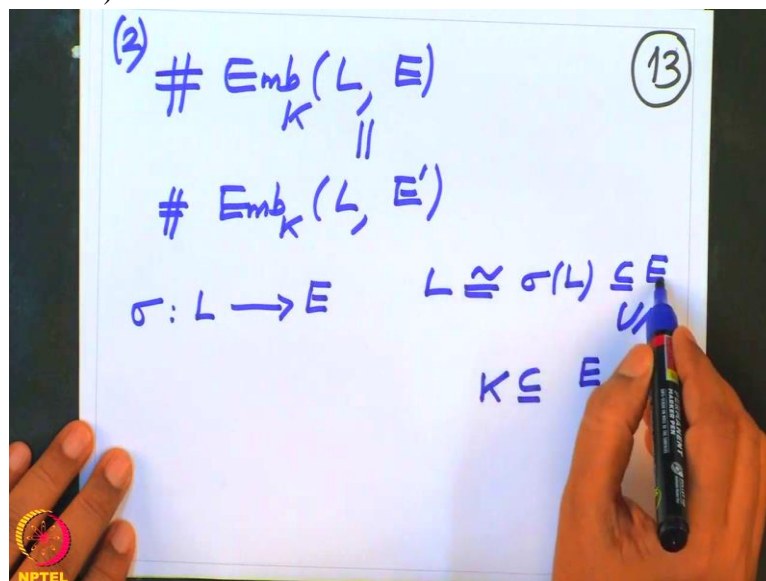 (2) # Emb_K (L, E) (13)
||
# Emb_K (L, E')
σ : L → E L ≅ σ(L) ⊆ E
K ⊆ E
NPTEL